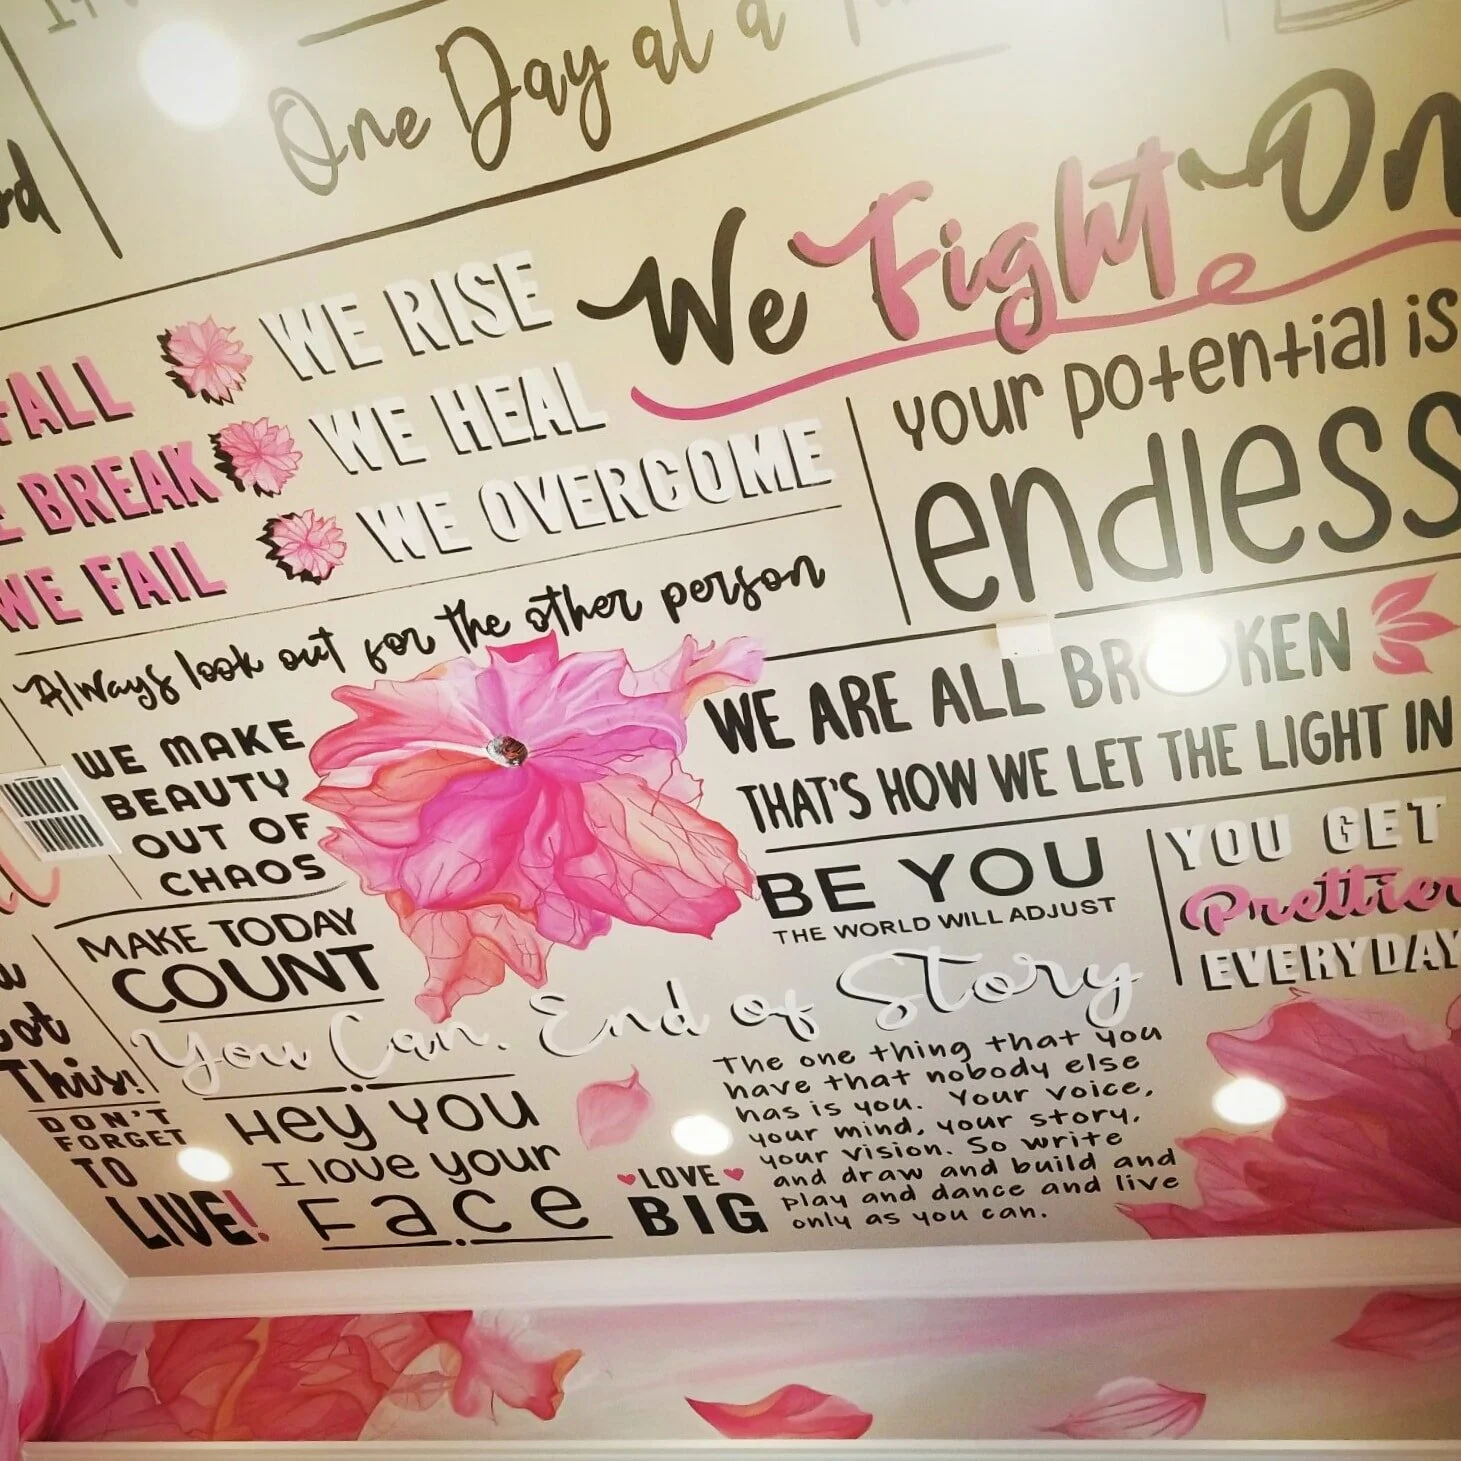 One Day at a
We Fight On
FALL WE RISE
BREAK WE HEAL
WE FAIL WE OVERCOME
your potential is
endless
Always look out for the other person
WE MAKE
BEAUTY
OUT OF
CHAOS
WE ARE ALL BROKEN
THAT'S HOW WE LET THE LIGHT IN
MAKE TODAY
COUNT
BE YOU
THE WORLD WILL ADJUST
YOU GET
Prettier
EVERYDAY
You Can. End of Story
This!
DON'T
FORGET
TO
LIVE!
Hey you
I love your
Face
LOVE
BIG
The one thing that you
have that nobody else
has is you. Your voice,
your mind, your story,
your vision. So write
and draw and build and
play and dance and live
only as you can.